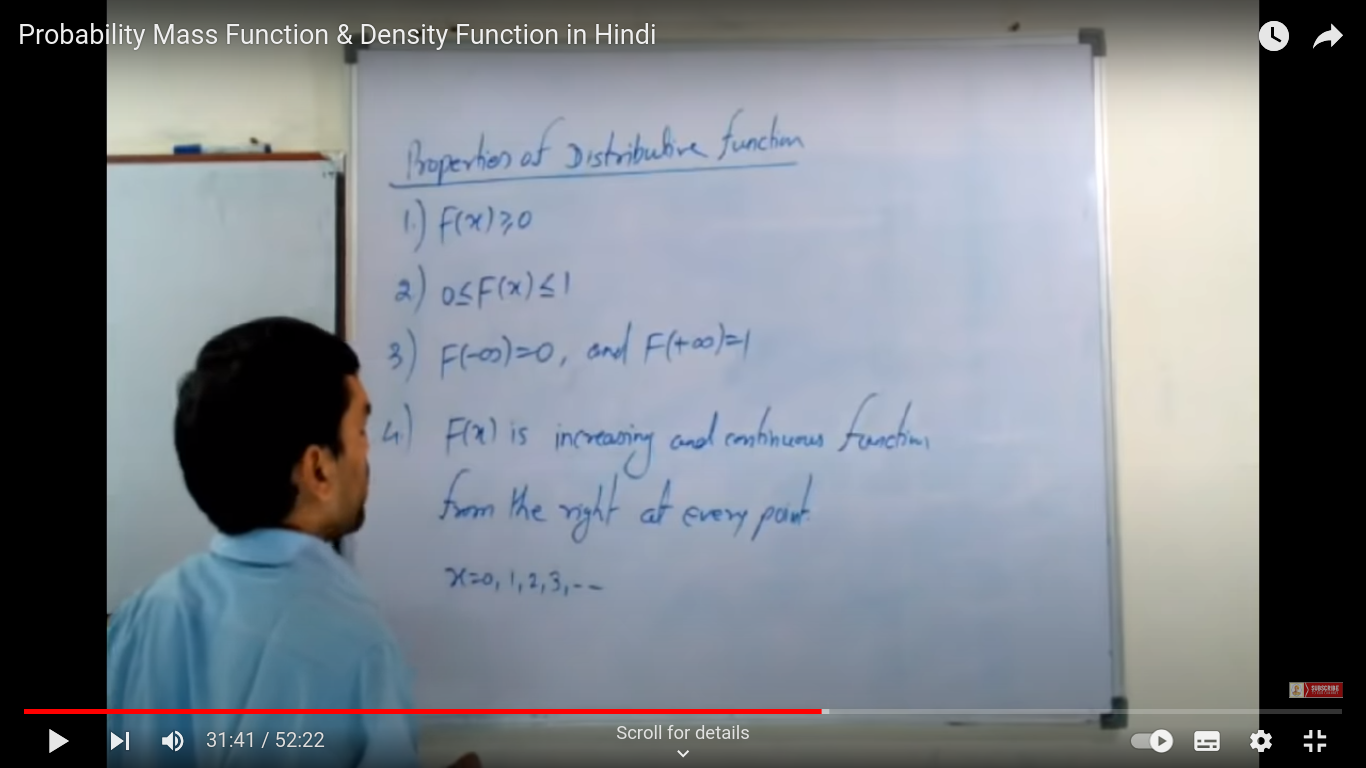 Probability Mass Function & Density Function in Hindi
Properties of Distributive function
1.) F(x) ≥ 0
2) 0 ≤ F(x) ≤ 1
3) F(-∞)=0, and F(+∞)=1
4.) F(x) is increasing and continuous function
from the right at every point.
x=0, 1, 2, 3, --
SUBSCRIBE
31:41 / 52:22
Scroll for details